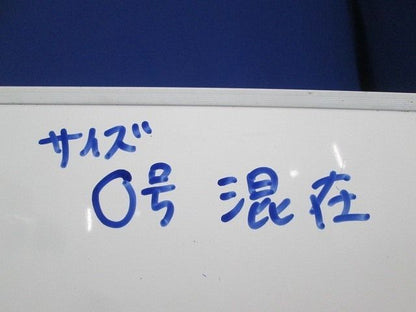 サイズ
0号 混在